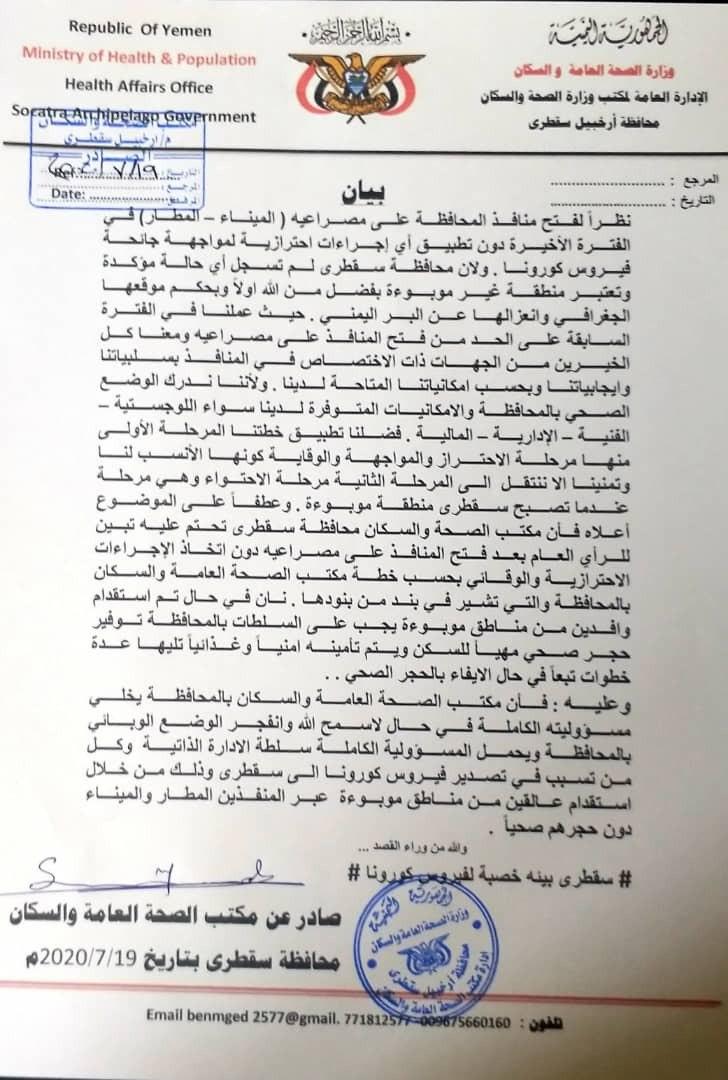 Republic Of Yemen
Ministry of Health & Population
Health Affairs Office
Socatra Archipelago Government
بسم الله الرحمن الرحيم
الجمهورية اليمنية
وزارة الصحة العامة والسكان
الإدارة العامة لمكتب وزارة الصحة والسكان
محافظة أرخبيل سقطرى
مكتب الصحة والسكان
م/ارخبيل سقطرى
الصادر
التاريخ:
المرجع:
Ref:
Date:
المرجع :
التاريخ :
بيان
نظراً لفتح منافذ المحافظة على مصراعيه ( الميناء – المطار) في
الفترة الأخيرة دون تطبيق أي إجراءات احترازية لمواجهة جائحة
فيروس كورونا . ولان محافظة سقطرى لم تسجل أي حالة مؤكدة
وتعتبر منطقة غير موبوءة بفضل من الله اولاً وبحكم موقعها
الجغرافي وانعزالها عن البر اليمني . حيث عملنا في الفترة
السابقة على الحد من فتح المنافذ على مصراعيه ومعنا كل
الخيرين من الجهات ذات الاختصاص في المنافذ بسلبياتنا
وايجابياتنا وبحسب امكانياتنا المتاحة لدينا . ولأننا ندرك الوضع
الصحي بالمحافظة والامكانيات المتوفرة لدينا سواء اللوجستية –
الفنية – الإدارية – المالية . فضلنا تطبيق خطتنا المرحلة الأولى
منها مرحلة الاحتراز والمواجهة والوقاية كونها الأنسب لنا
وتمنينا الا ننتقل الى المرحلة الثانية مرحلة الاحتواء وهي مرحلة
عندما تصبح سقطرى منطقة موبوءة . وعطفاً على الموضوع
أعلاه فأن مكتب الصحة والسكان محافظة سقطرى تحتم عليه تبين
للرأي العام بعد فتح المنافذ على مصراعيه دون اتخاذ الإجراءات
الاحترازية والوقائي بحسب خطة مكتب الصحة العامة والسكان
بالمحافظة والتي تشير في بند من بنودها . نان في حال تم استقدام
وافدين من مناطق موبوءة يجب على السلطات بالمحافظة توفير
حجر صحي مهيأ للسكن ويتم تأمينه امنياً وغذائياً تليها عدة
خطوات تبعاً في حال الايفاء بالحجر الصحي ..
وعليه : فأن مكتب الصحة العامة والسكان بالمحافظة يخلي
مسؤوليته الكاملة في حال لاسمح الله وانفجر الوضع الوبائي
بالمحافظة ويحمل المسؤولية الكاملة سلطة الادارة الذاتية وكل
من تسبب في تصدير فيروس كورونا الى سقطرى وذلك من خلال
استقدام عالقين من مناطق موبوءة عبر المنفذين المطار والميناء
دون حجرهم صحياً .
والله من وراء القصد ...
# سقطرى بيئه خصبة لفيروس كورونا #
صادر عن مكتب الصحة العامة والسكان
محافظة سقطرى بتاريخ 2020/7/19م
الجمهورية اليمنية
وزارة الصحة العامة والسكان
محافظة أرخبيل سقطرى
ادارة مكتب الصحة العامة والسكان
Email benmged 2577@gmail. 771812577 -009675660160 : تلفون